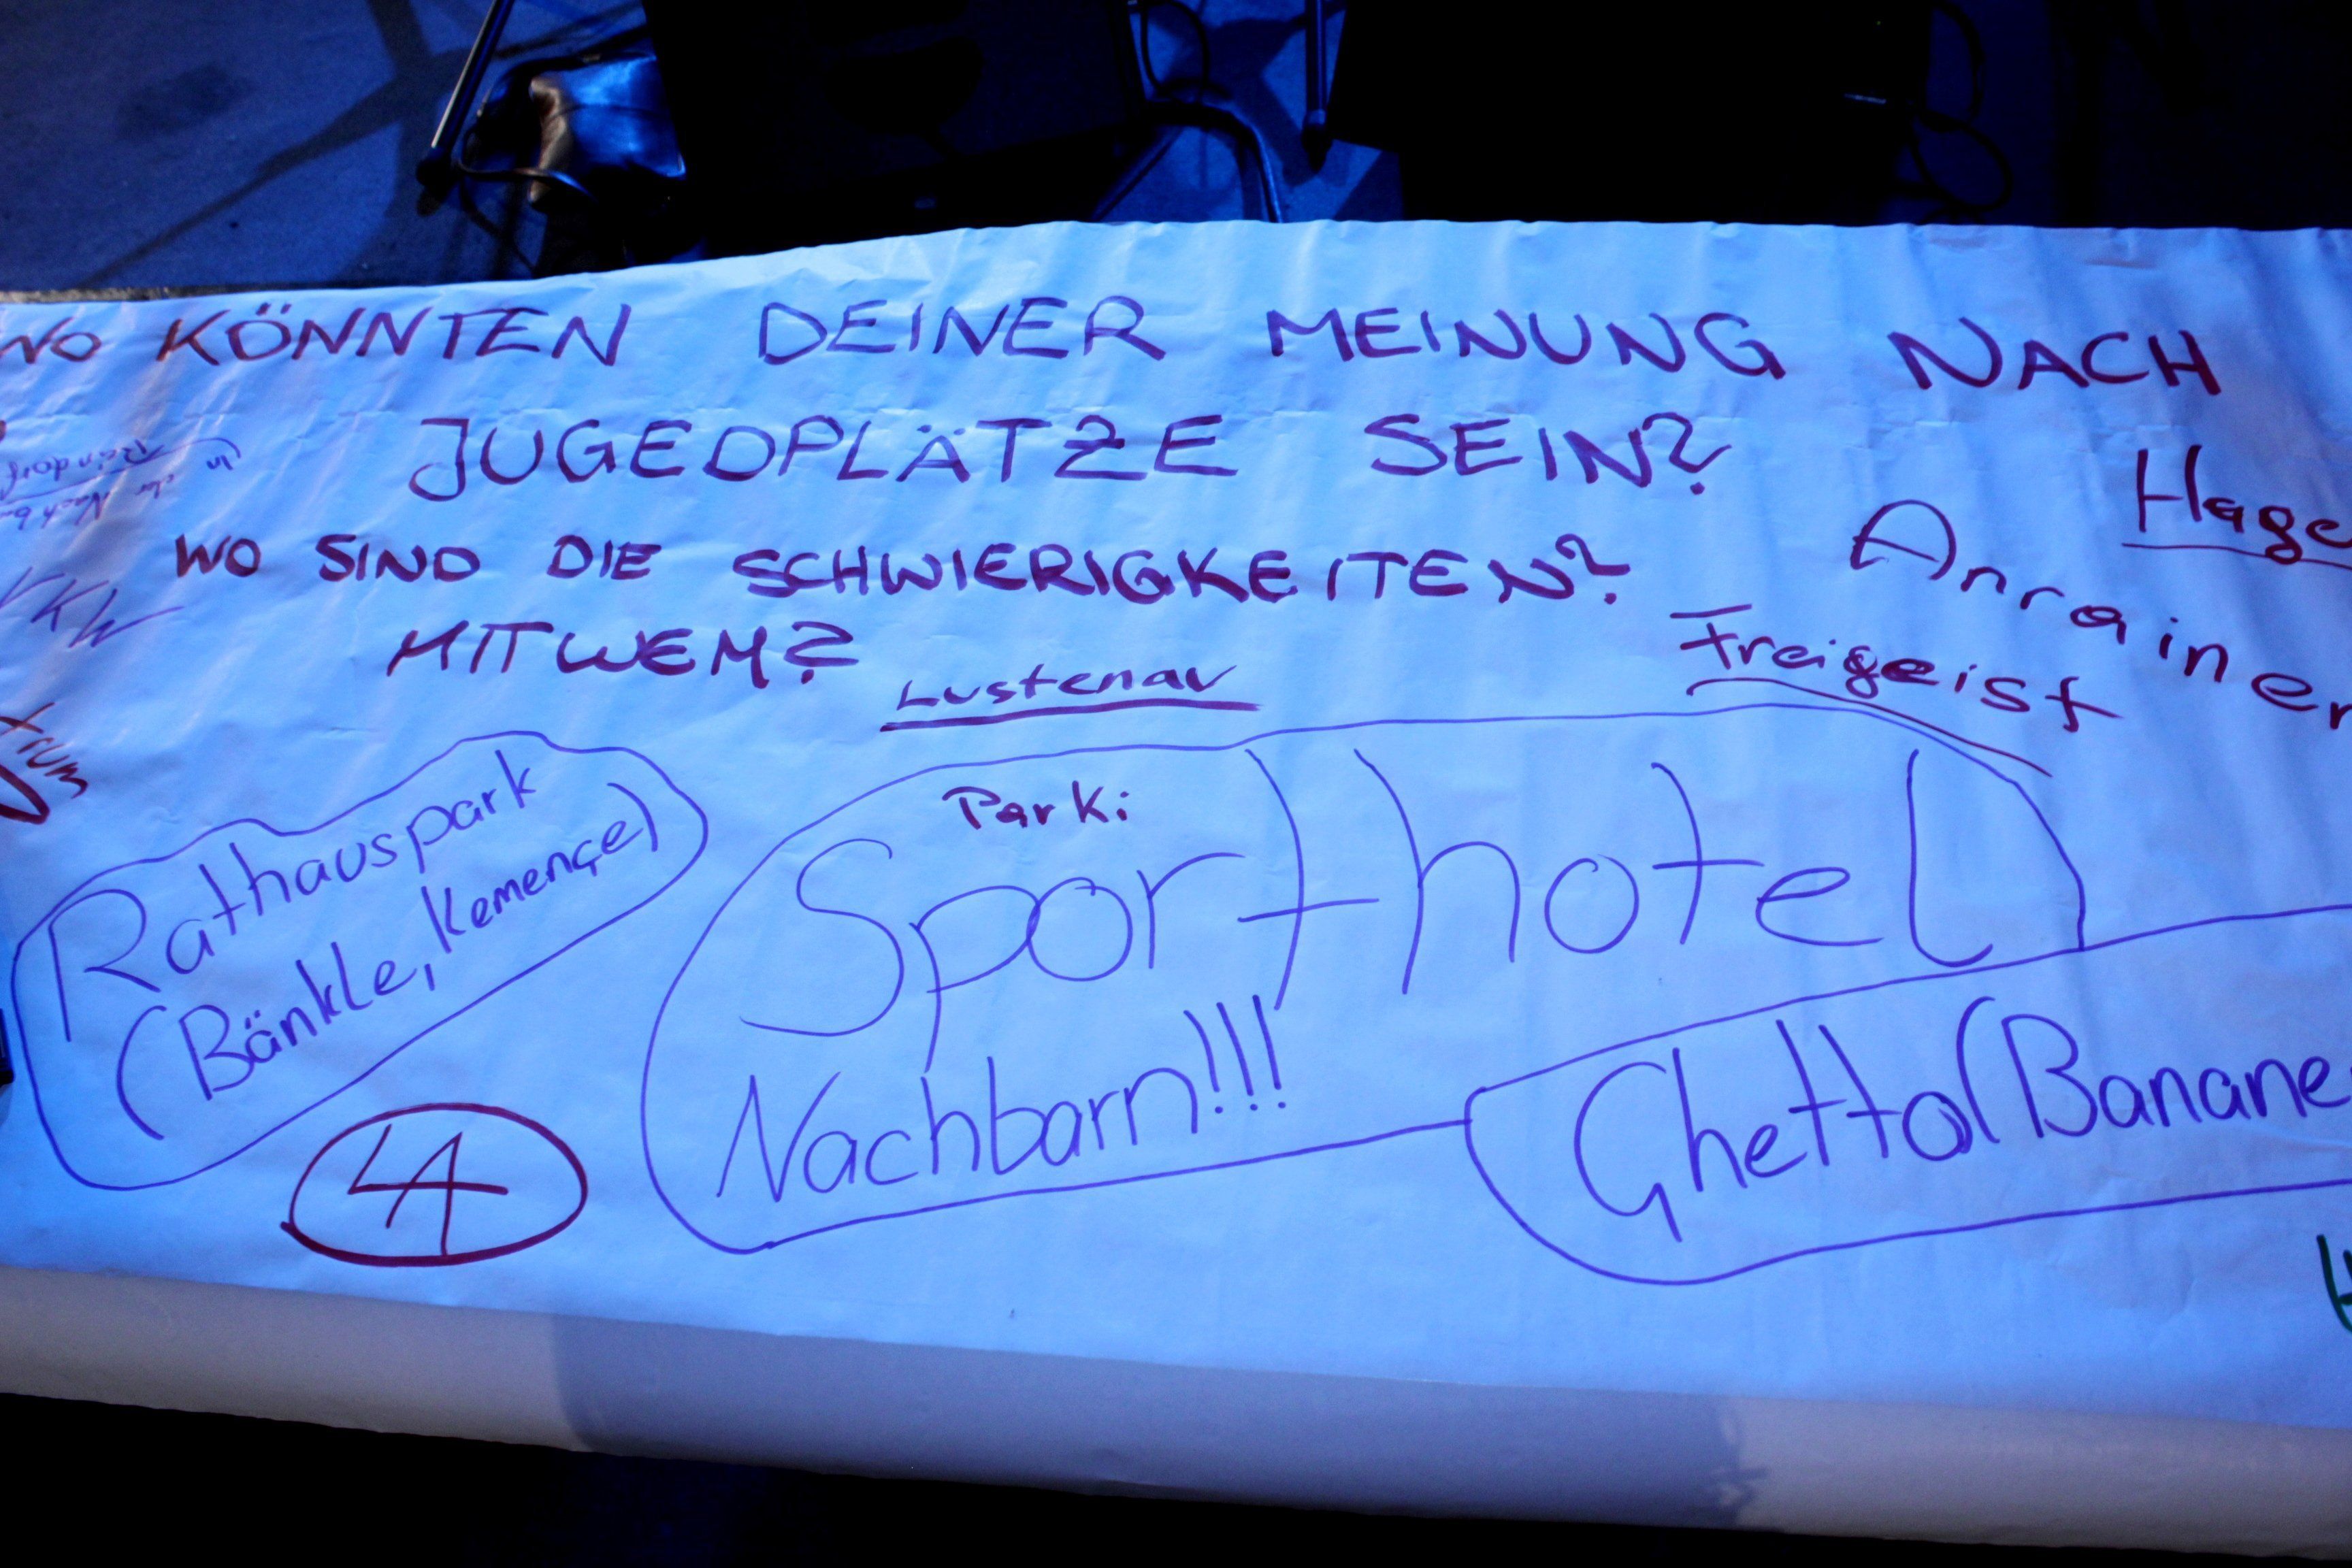 WO KÖNNTEN DEINER MEINUNG NACH
JUGEDPLÄTZE SEIN?
WO SIND DIE SCHWIERIGKEITEN?
MIT WEM?
Lustenau
Freigeist
Anrainer
Rathauspark
(Bänkle, Kemençe)
Park:
Sporthotel
Nachbarn!!!
Ghetto(Banane
4